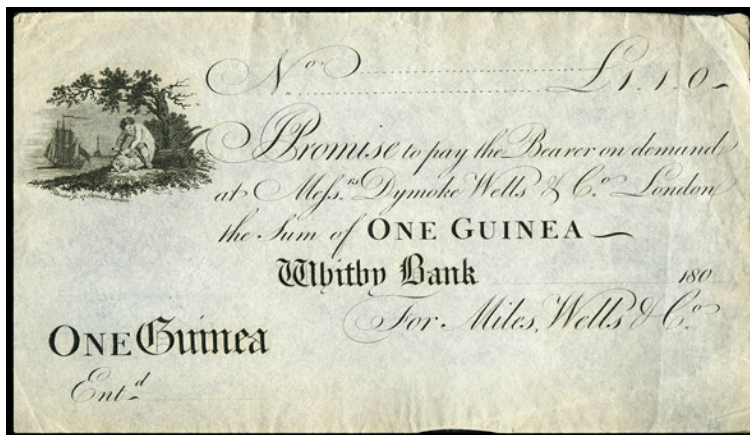 No. £1.1.0
I Promise to pay the Bearer on demand
at Messrs. Dymoke Wells & Co. London
the Sum of ONE GUINEA
Whitby Bank 180
For Miles, Wells & Co.
ONE Guinea
Entd.